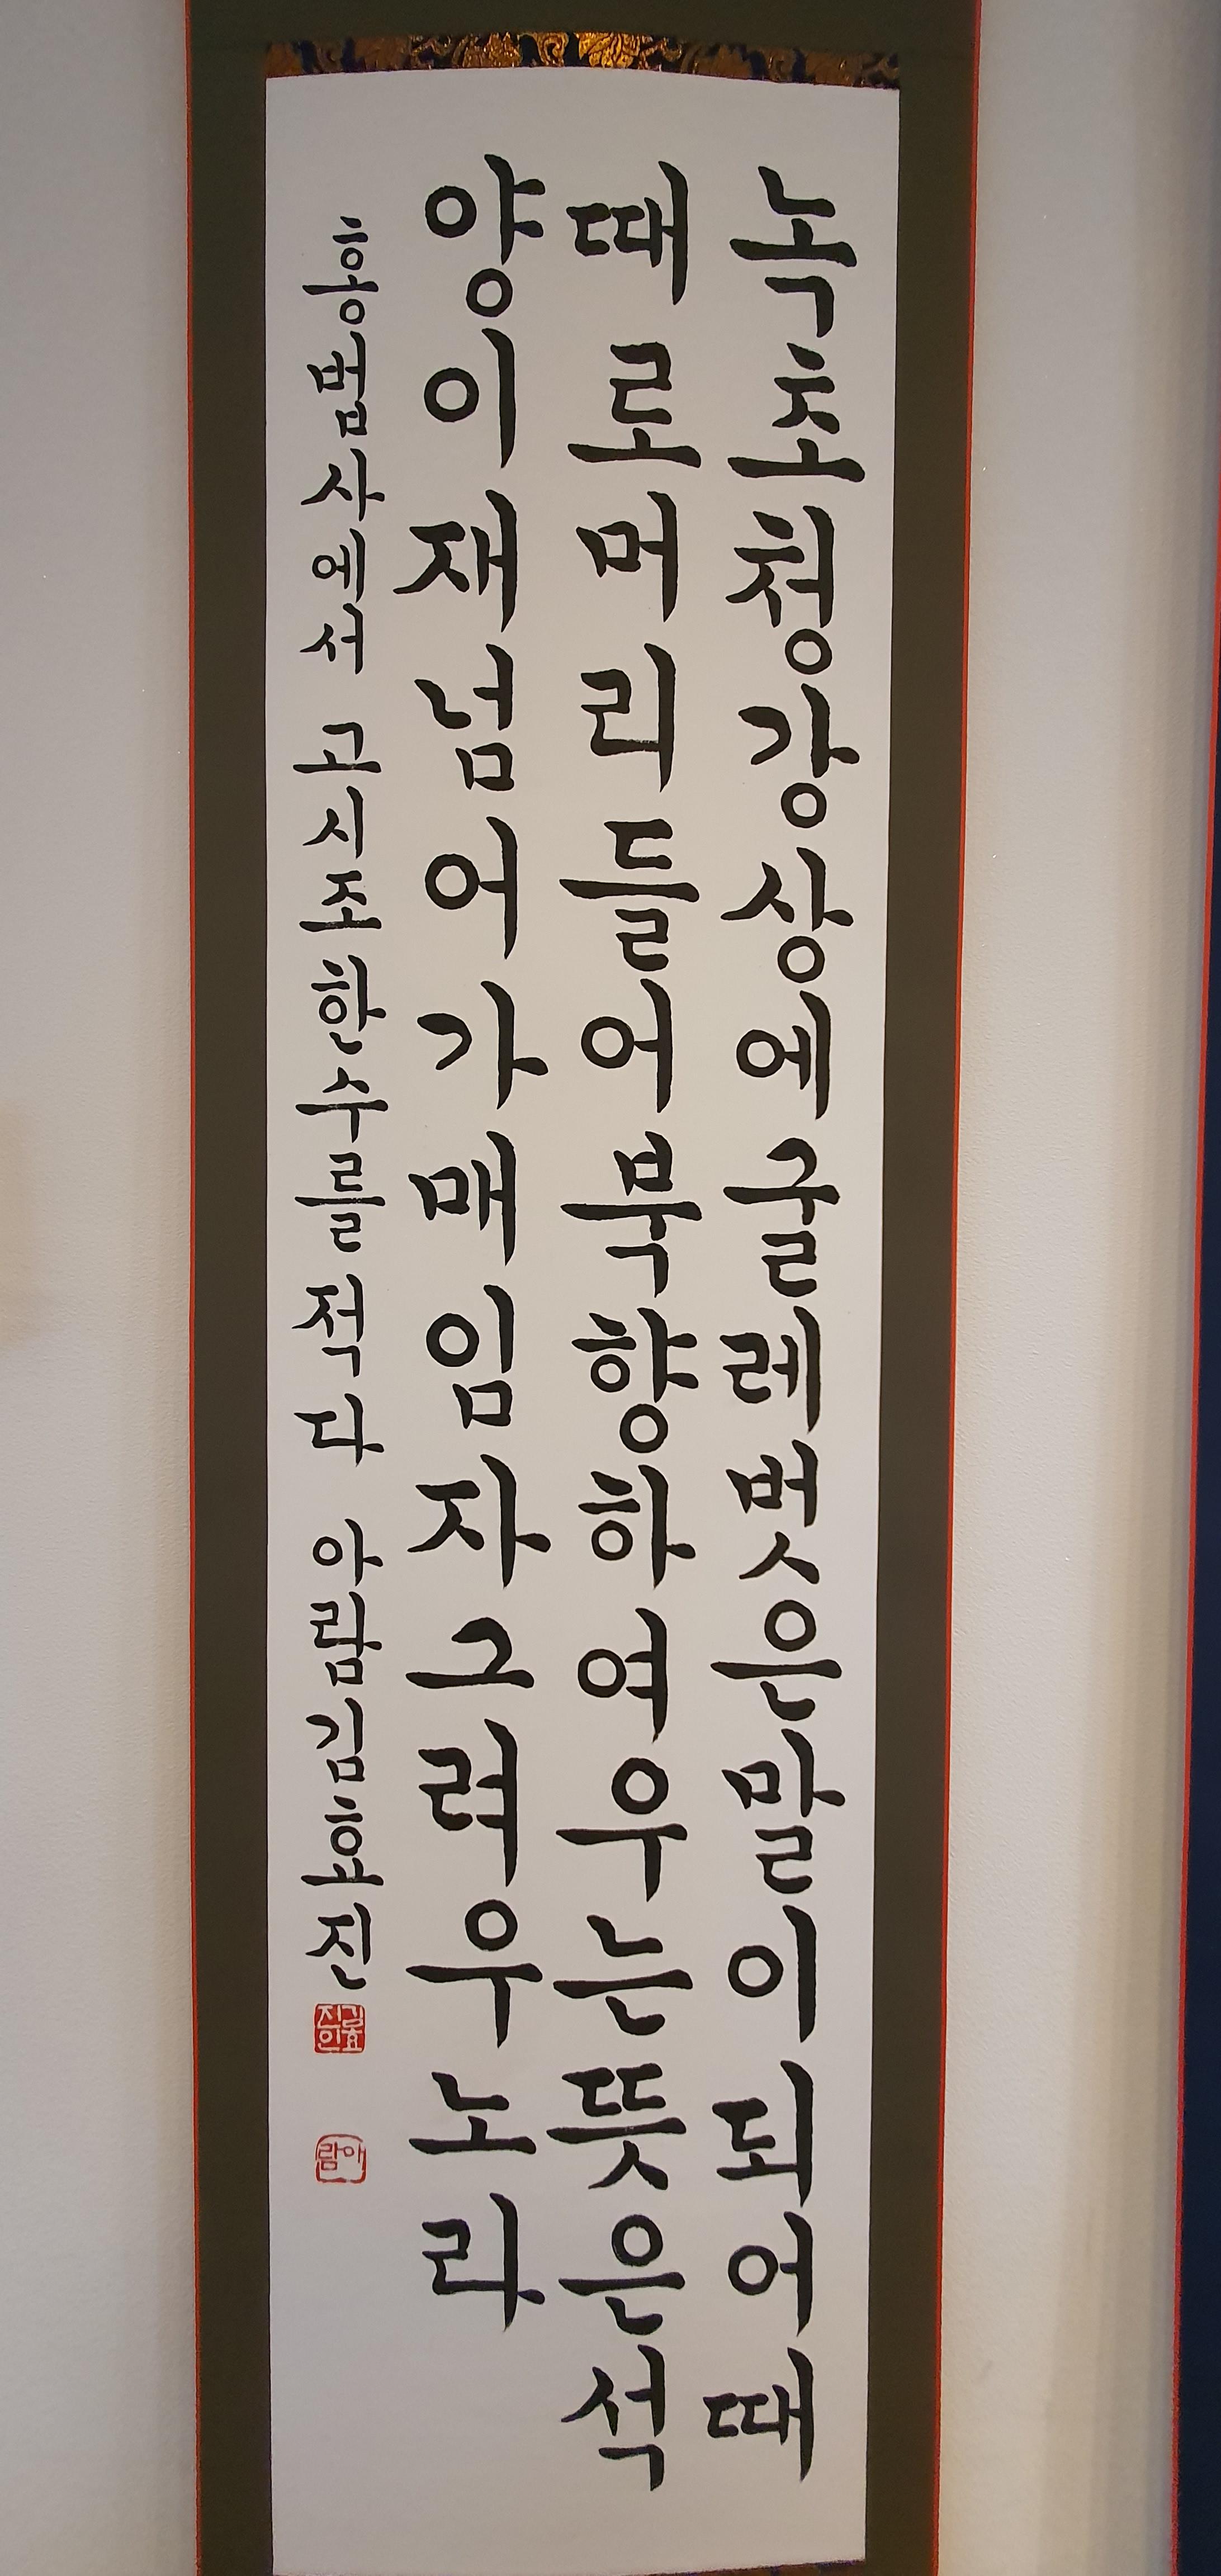 녹초청강상에굴레벗은말이되어때
때로머리들어북향하여우는뜻은석
양이재넘어가매임자그려우노라
홍법사에서 고시조한수를적다 아람김효진
김효진인
아람